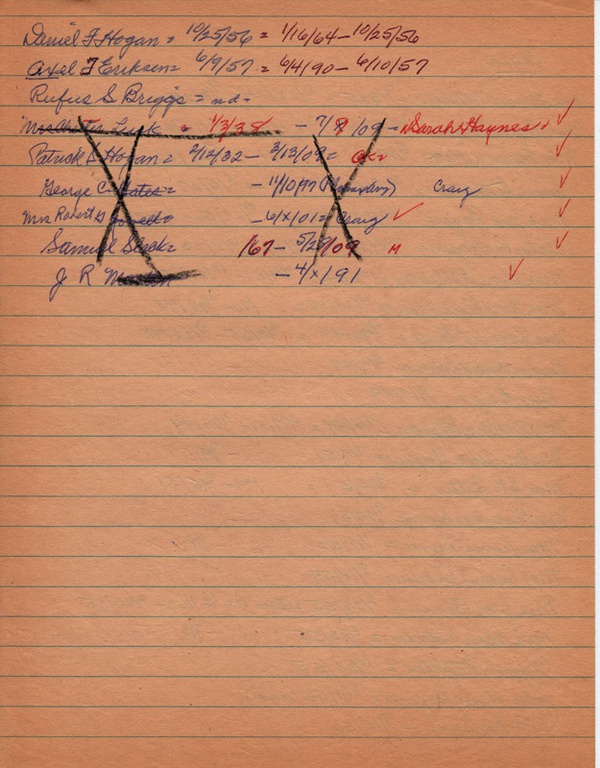 Daniel F Hogan = 10/25/56 = 1/16/64 - 10/25/56
Axel F Eriksen = 6/9/57 = 6/4/90 - 6/10/57
Rufus S Briggs = n.d.-
Lusk = 1/3/38 - 7/8/09 - "Sarah Haynes" ✓
Patrick S Hogan = 2/12/32 - 3/13/09 = ✓
George C Bates = - 11/10/97 Craig ✓
Mrs Robert G - 6/x/01 = Craig ✓ ✓
Samuel = 1/67 - 5/29/09 M ✓
J R - 4/x/91 ✓